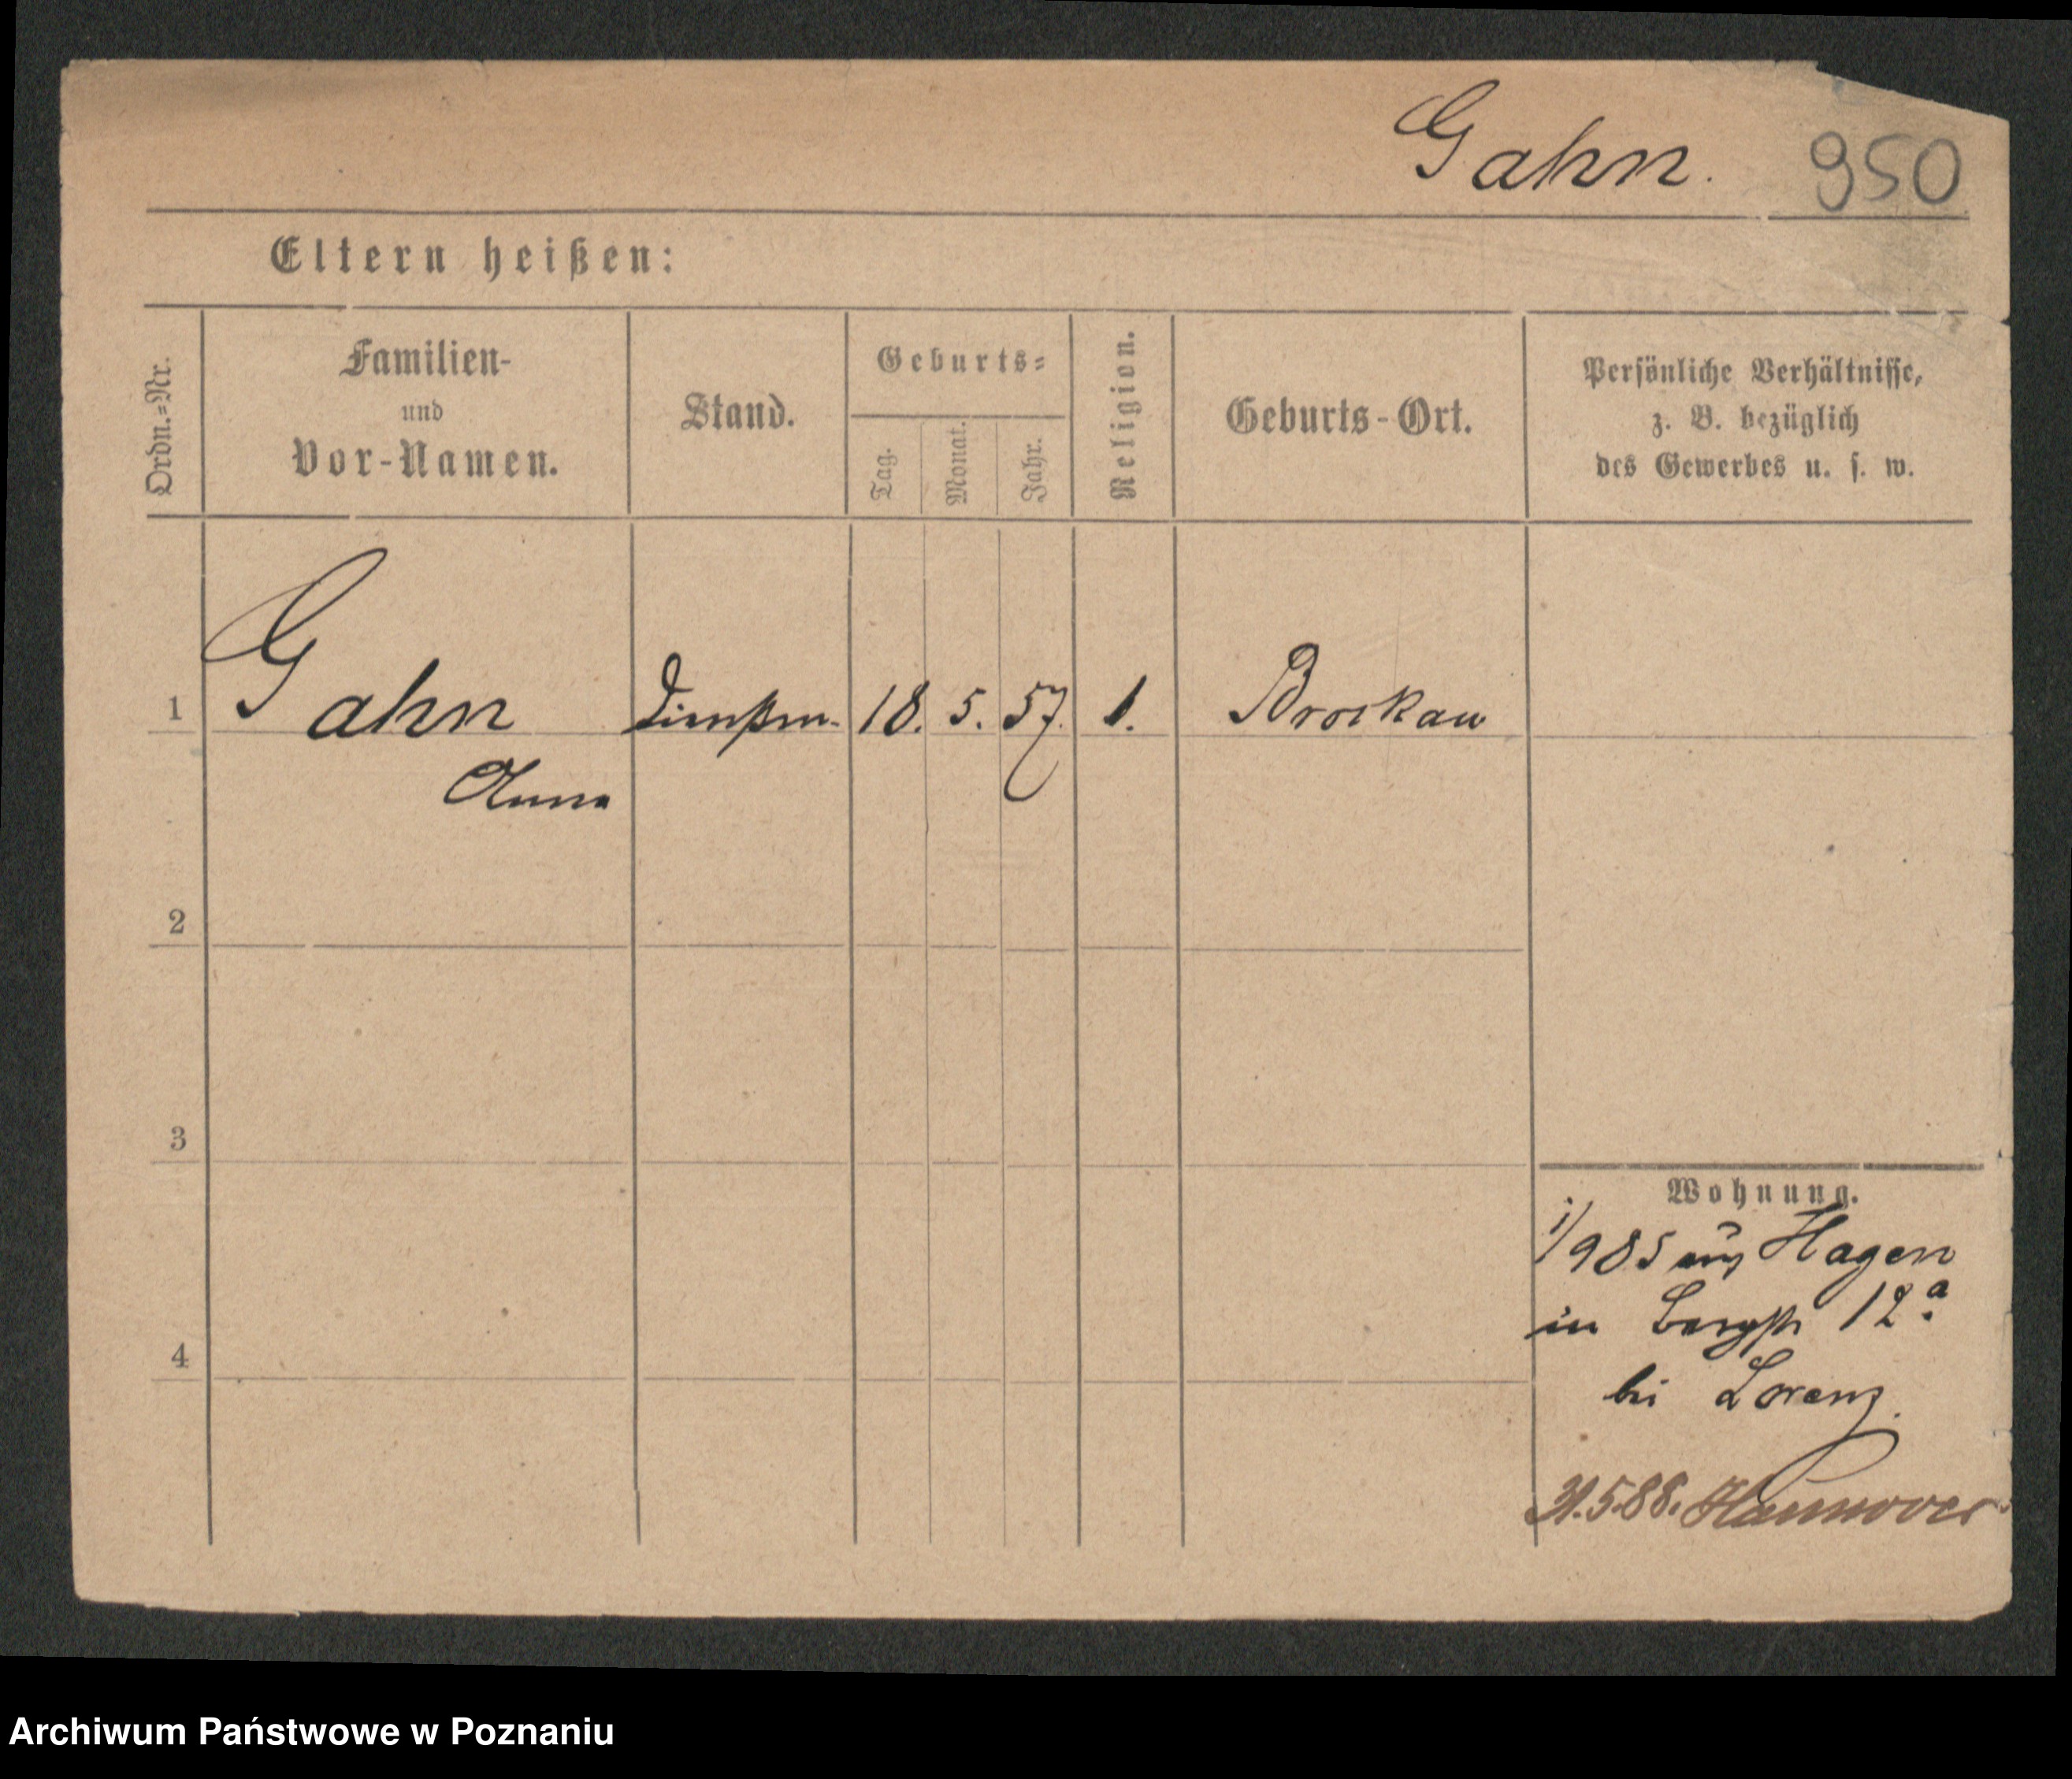 Gahn. 950
Eltern heißen:
Ordn.=Nr.
Familien-
und
Vor-Namen.
Stand.
Geburts=
Tag.
Monat.
Jahr.
Religion.
Geburts-Ort.
Persönliche Verhältnisse,
z. B. bezüglich
des Gewerbes u. s. w.
1 Gahn 18. 5. 57. Brockau
Anna
2
3
4
Wohnung.
1/985 aus Hagen
in Bergstr 12a.
bei Lorenz.
31.5.88. Hannover
Archiwum Państwowe w Poznaniu